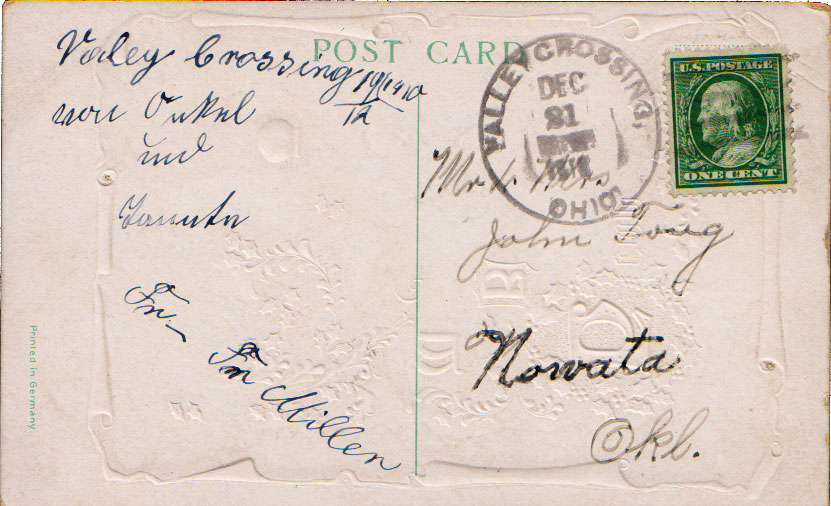 POST CARD
Valey Crossing
19/1910
12
von Onkel
und
Tannte
Fr
Fr Miller
VALLEY CROSSING,
DEC
21
OHIO
U.S. POSTAGE
ONE CENT
Mr & Mrs
John
Nowata
Okl.
Printed in Germany.